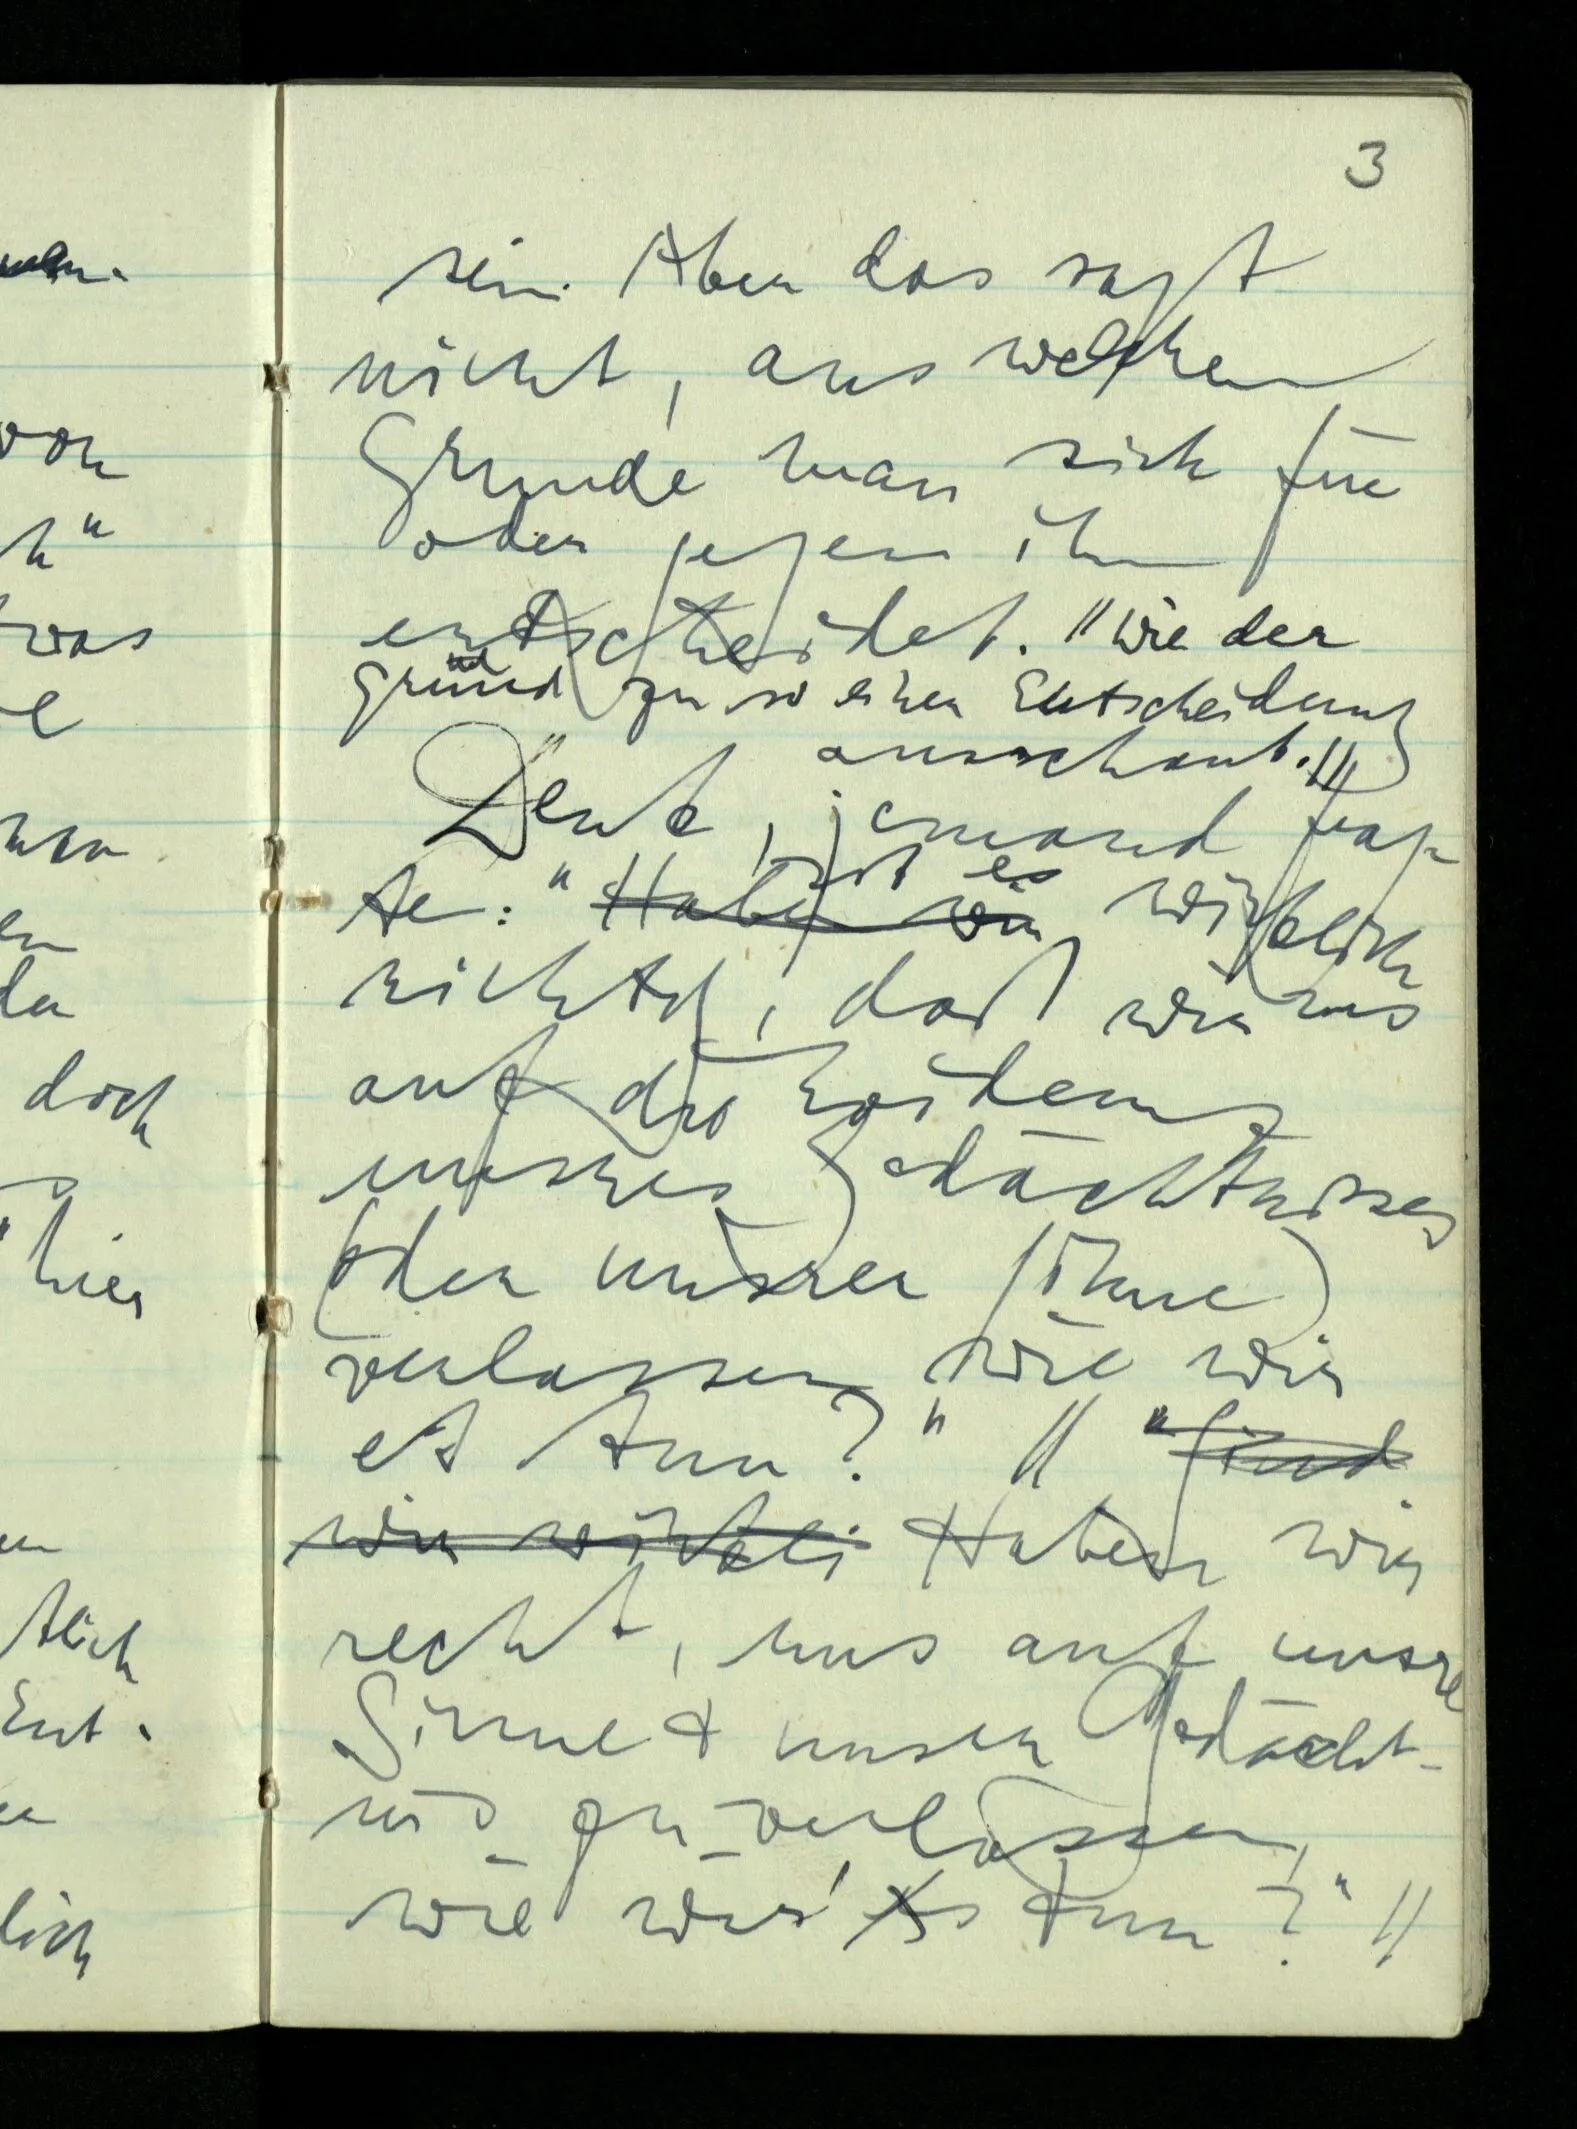 3
sein. Aber das sagt
nicht, aus welchem
Grunde man sich für
oder gegen ihn
entscheidet. // Wie der
Grund zu so einer Entscheidung
ausschaut. //
Denk, jemand frag-
te: "Haben wir ist es wirklich
richtig, daß wir uns
auf die Evidenz
unsres Gedächtnisses
(oder unsrer Sinne)
verlassen, wie wir
es tun?" // "Sind
wir wirkli Haben wir
recht, uns auf unsre
Sinne & unser Gedächt-
nis zu verlassen,
wie wir's tun?" //
von
h"
was
doch
"hier
tlich
Ent-
lich